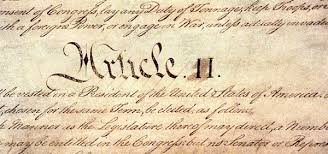 onsent of Congress, lay any Duty of Tonnage, keep Troops, or
th a foreign Power, or engage in War, unless actually invaded
Article. II.
l be vested in a President of the United States of America.
chosen for the same Term, be elected, as follows
Manner as the Legislature thereof may direct, a Numbe
may be entitled in the Congress: but no Senator or Repre